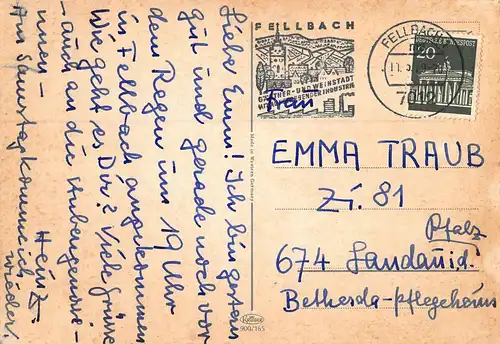 Liebe Emma! Ich bin gestern
gut und gerade noch vor
dem Regen um 19 Uhr
in Fellbach angekommen
Wie geht es Dir? Viele Grüsse
- auch an die Stubengenos-
innen -
Heinz.
Am Samstag komme ich
wieder
FELLBACH
GÄRTNER- UND WEINSTADT
INDUSTRIE
FELLBACH
7012
20
DEUTSCHE BUNDESPOST
Frau
EMMA TRAUB
Zi. 81
Pfalz
674 Landau i. d.
Bethesda-Pflegeheim
Made in Western Germany
900/165